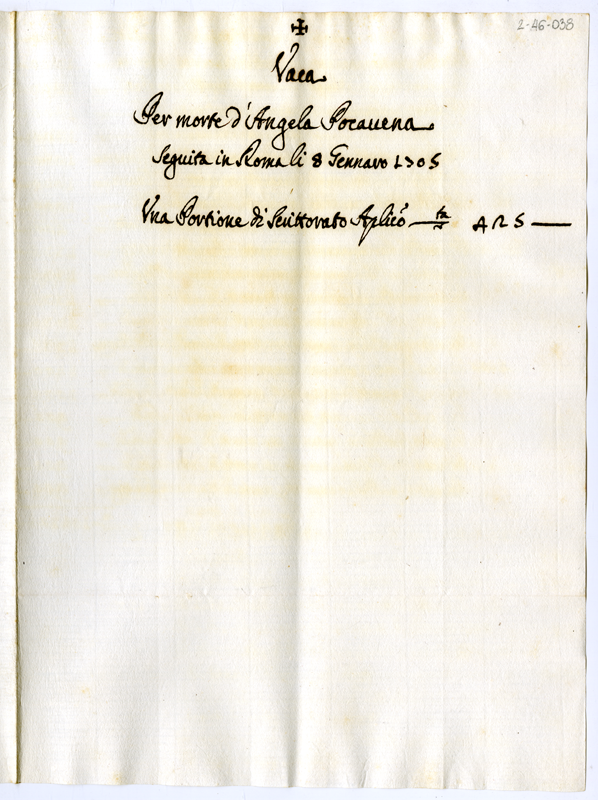 2-46-038
✠
Vaca
Per morte d'Angela Pocauena
seguita in Roma li 8 Gennaro 1705
Vna Portione di Scrittorato Aplicō —